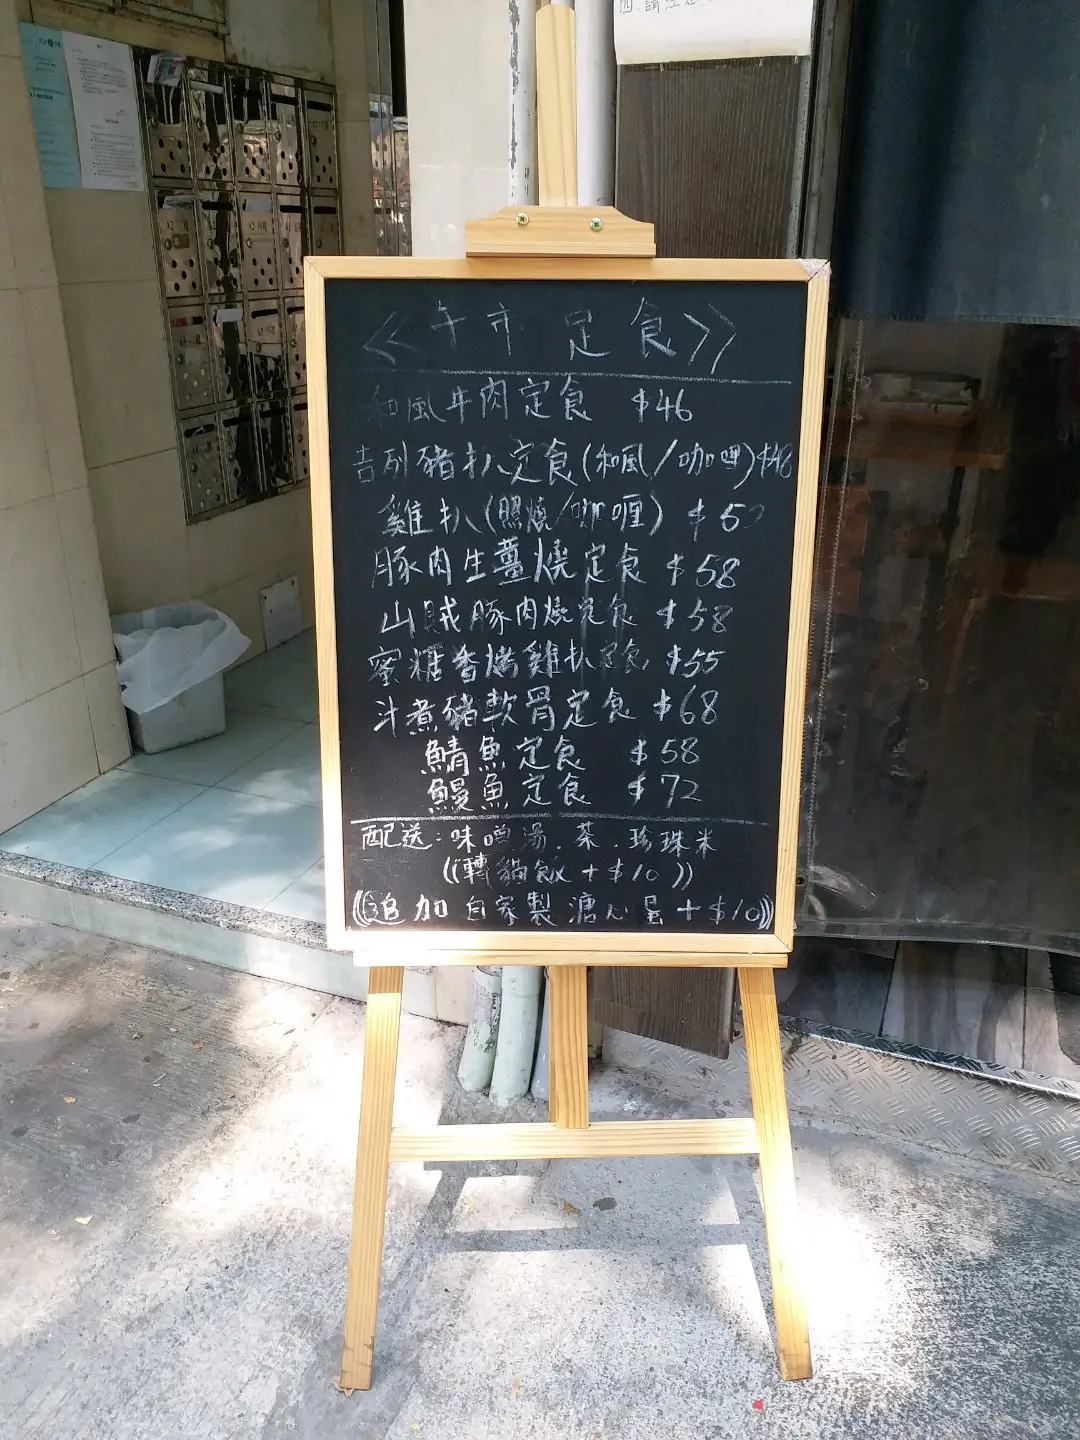 四.請注意
<<午市 定食>>
和風牛肉定食 $46
吉列豬扒定食(和風/咖喱)$48
雞扒(照燒/咖喱) $50
豚肉生薑燒定食 $58
山賊豚肉燒定食 $58
蜜糖香燒雞扒定食 $55
汁煮豬軟骨定食 $68
鯖魚定食 $58
鰻魚定食 $72
配送:味噌湯.茶.珍珠米
((轉貓飯+$10))
((追加自家製溏心旦+$10))